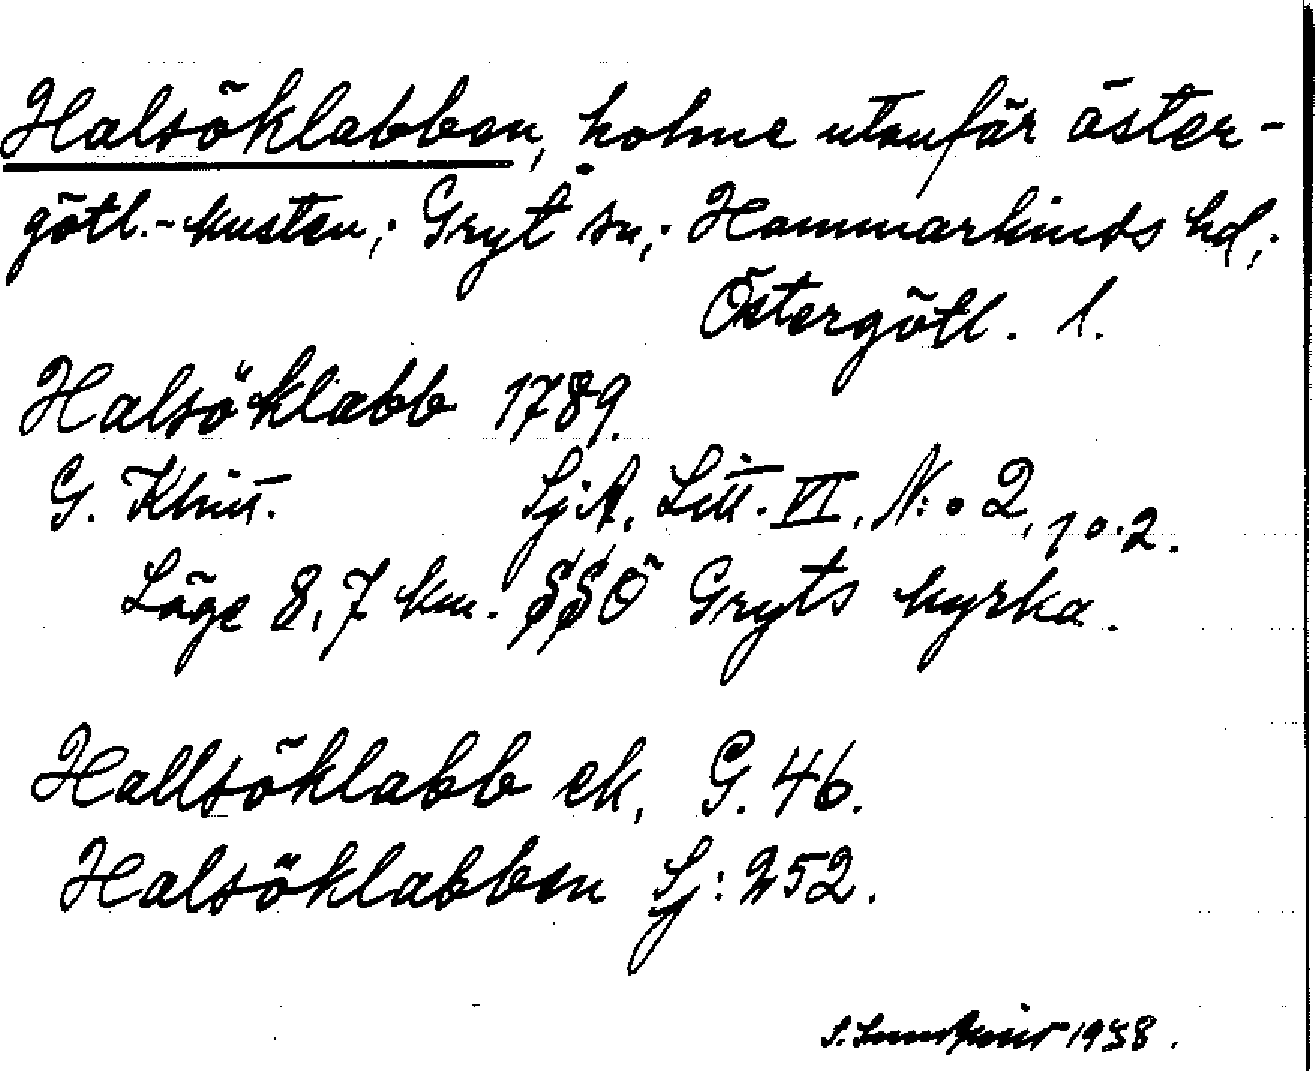 Halsöklabben, holme utanför öster-
götl.-kusten; Gryt sn; Hammarkinds hd;
Östergötl. l.
Halsöklabb 1789.
G. Klint. Sj.A. Litt. VI. N:o 2, 1 o. 2.
Läge 8,7 km. SSÖ Gryts kyrka.
Hallsöklabb ek, G. 46.
Halsöklabben Sj: 252.
S. 1938.